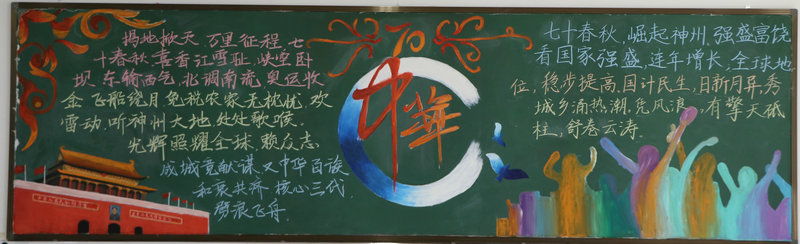 揭地掀天，万里征程，七
十春秋，喜香江雪耻，峡空卧
坝，东输西气，北调南流，奥运收
金，飞船绕月，免税农家无忧忧，欢
雷动，听神州大地，处处歌喉。
光辉照耀全球，赖众志
成城竞献谋，又中华百族
和衷共济，核心三代，
劈浪飞舟。
70
中華
七十春秋，崛起神州，强盛富饶
看国家强盛，连年增长，全球地
位，稳步提高，国计民生，日新月异，秀
城乡涌热潮，凭风浪，有擎天砥
柱，舒卷云涛。